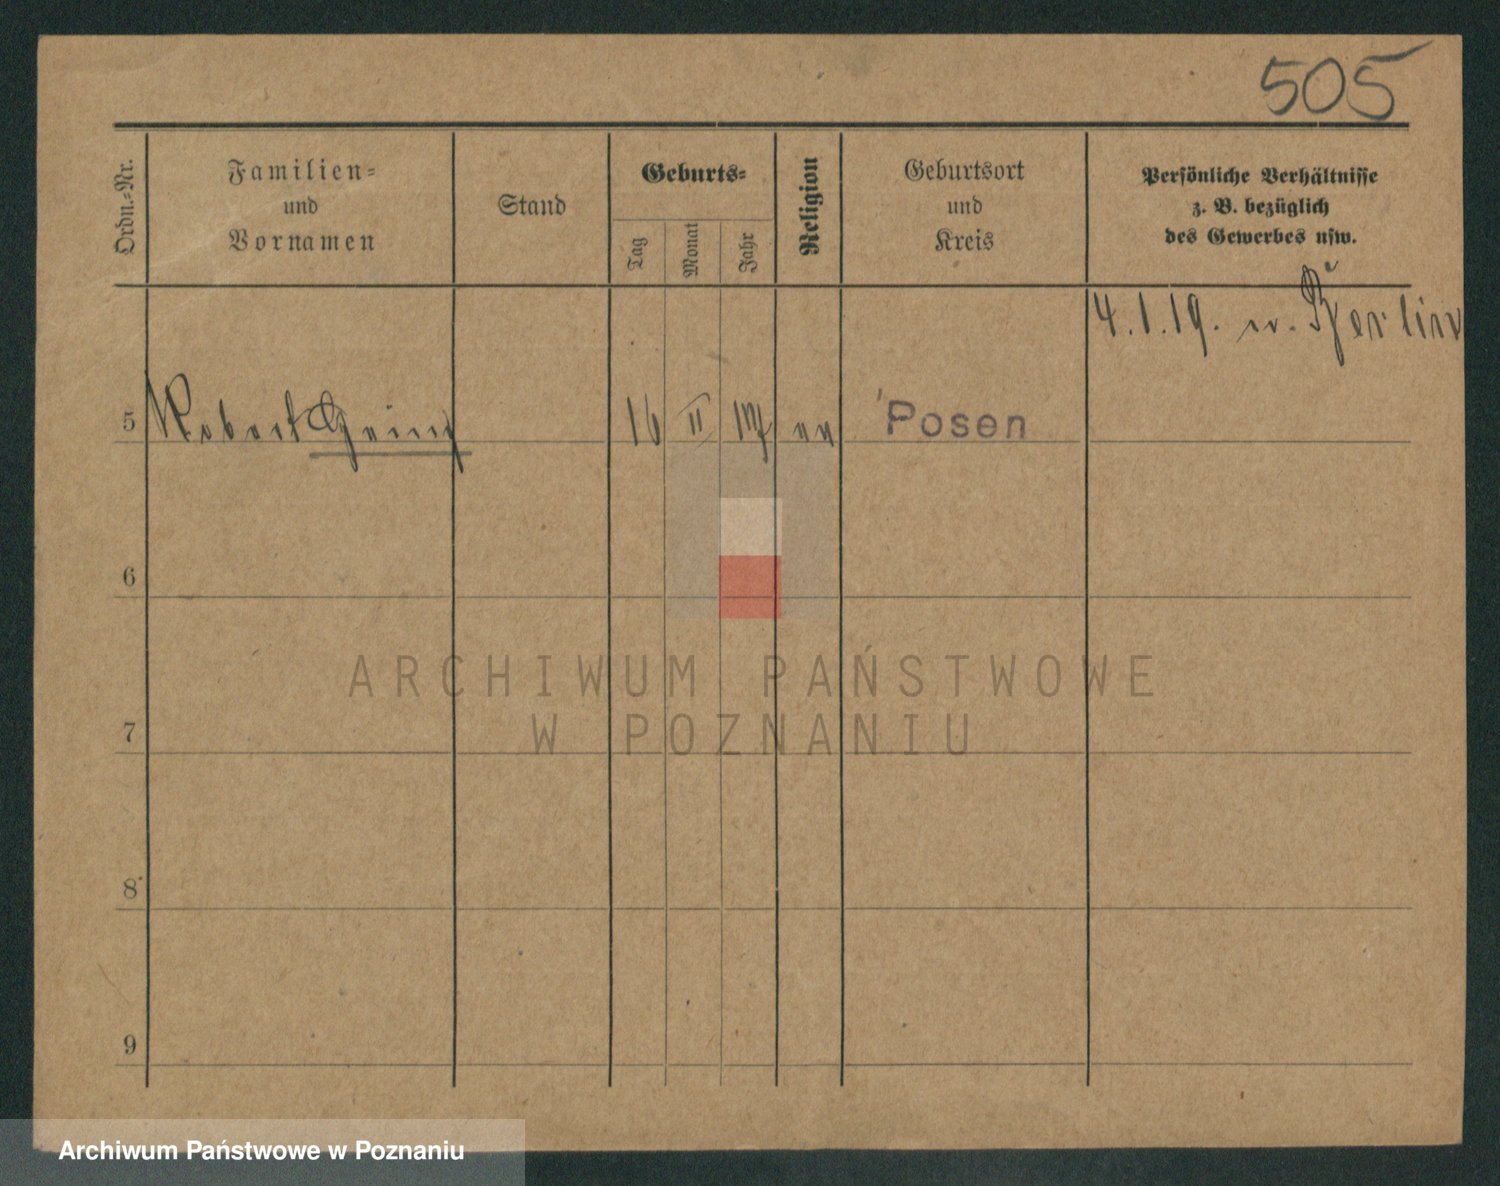 505
Ordn.-Nr.
Familien-
und
Vornamen
Stand
Geburts-
Tag
Monat
Jahr
Religion
Geburtsort
und
Kreis
Persönliche Verhältnisse
z. B. bezüglich
des Gewerbes usw.
4.1.19. v. Berlin
5 Robert Heinz 16 II 17 Posen
6
7
8
9
ARCHIWUM PAŃSTWOWE
W POZNANIU
Archiwum Państwowe w Poznaniu